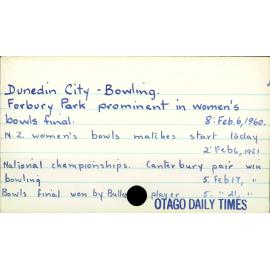 Dunedin City - Bowling.
Forbury Park prominent in women's
bowls final. 8: Feb. 6, 1960.
N.Z. women's bowls matches start today
2: Feb 6, 1961
National championships. Canterbury pair win
bowling 5. Feb 17, "
Bowls final won by player 5. " 21, "
OTAGO DAILY TIMES